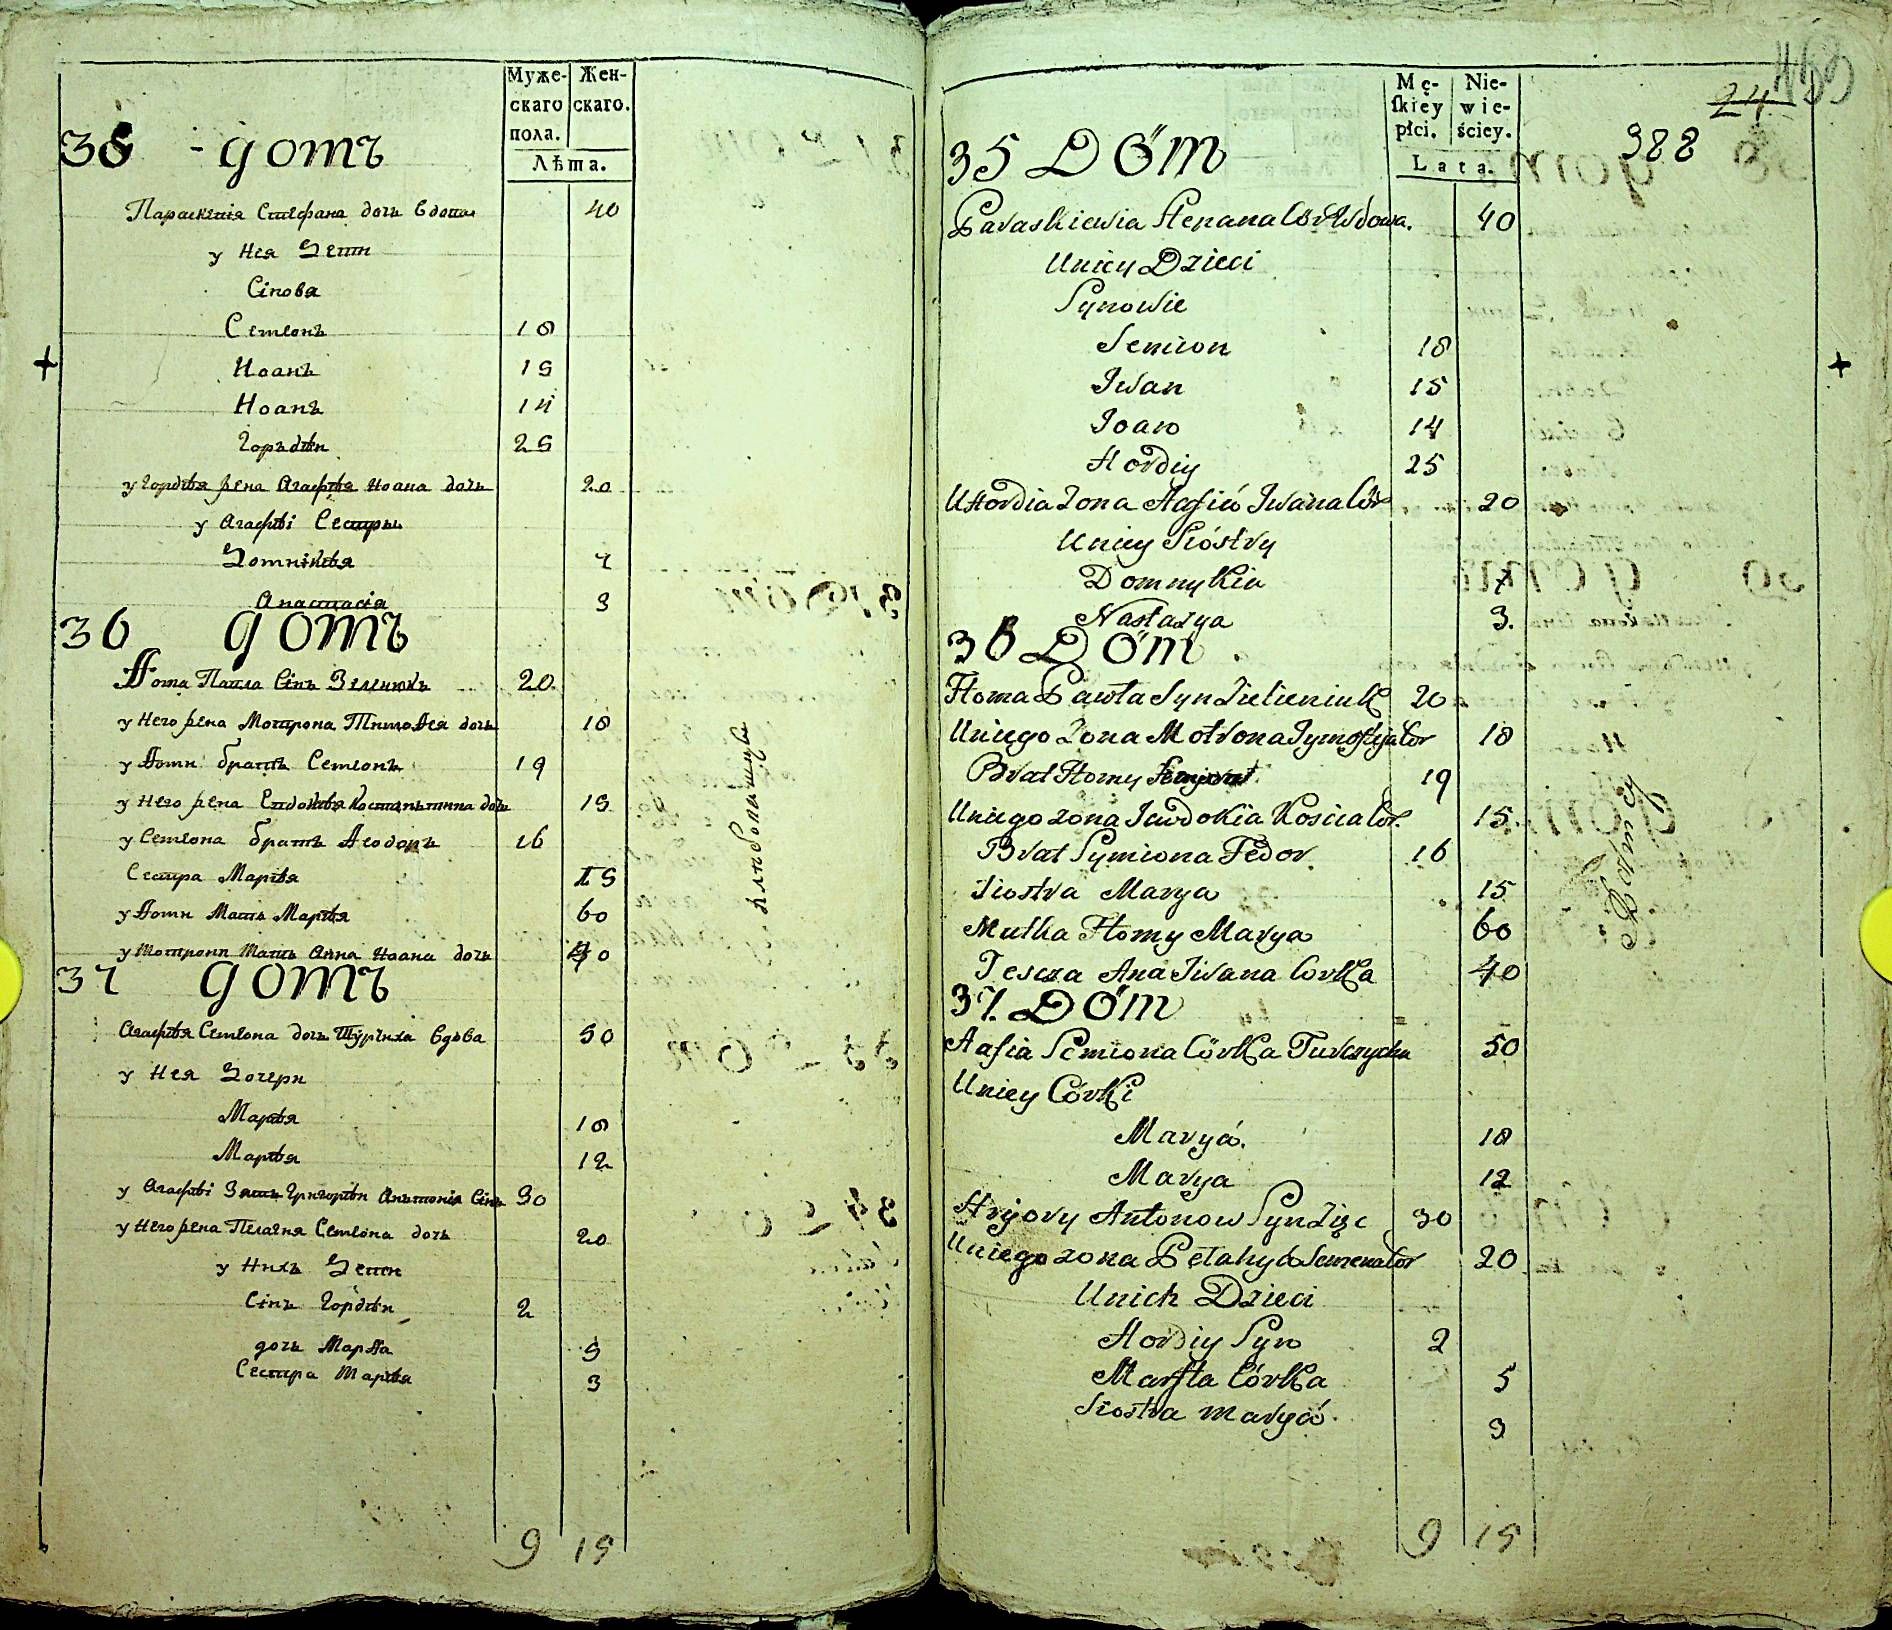 Муже-
скаго
пола.
Жен-
скаго.
Лѣта.
35 - домъ
Параскевія Стефана дочь вдова 40
у Нея Дети
Сінови
Семіонъ 18
Иоанъ 15
Иоанъ 14
Горъдѣи 25
у Гордѣя жена Агафія Иоана дочь 20
у Агафіи Сестры
Домникія 7
Анастасія 3
36 домъ
Ѳома Павла Сінъ Зеленюкъ 20
у Него жена Мотрона Тимоѳея дочь 18
у Ѳоми братъ Семіонъ 19
у Него жена Евдокія Костантина дочь 15
у Семіона братъ Ѳеодоръ 16
Сестра Марія 15
у Ѳоми Мать Марія 60
у Мотрони Мать Анна Иоана дочь 40
37 домъ
Агафія Семіона дочь Турчиха вдова 50
у Нея Дочери
Марія 18
Марія 12
у Агафіи Зять Григорѣи Анътонія Сінъ 30
у Него жена Пелагия Семіона дочь 20
у Нихъ Дети
Сінъ Гордѣи 2
дочь Марѳа 5
Сестра Марія 3
9 15
Mę-
skiey
płci.
Nie-
wie-
ściey.
Lata.
24
388
35 Dóm
Paraskiewia Stepana Cór Wdowa. 40
Uniey Dzieci
Synowie
Semion 18
Iwan 15
Ioan 14
Hordiy 25
U Hordia Zona Hafia Iwana Cór 20
Uniey Sióstry
Domnykia 7
Nastazya 3.
36 Dóm
Homa Pawła Syn Zielieniuk 20
Uniego Zona Motrona Tymoftya Cor 18
Brat Homy 19
Uniego zona Iewdokia Koscia Cór. 15.
Brat Symiona Fedor 16
Siostra Marya 15
Matka Homy Marya 60
Tescza Ana Iwana Corka 40
37. Dóm
Hafia Semiona Córka Turczycha 50
Uniey Córki
Marya. 18
Marya 12
Hryory Antonow Syn Zięc 30
Uniego zona Pelahya Semena Cor 20
Unich Dzieci
Hordiy Syn 2
Marfta Córka 5
Siostra Marya. 3
9 15